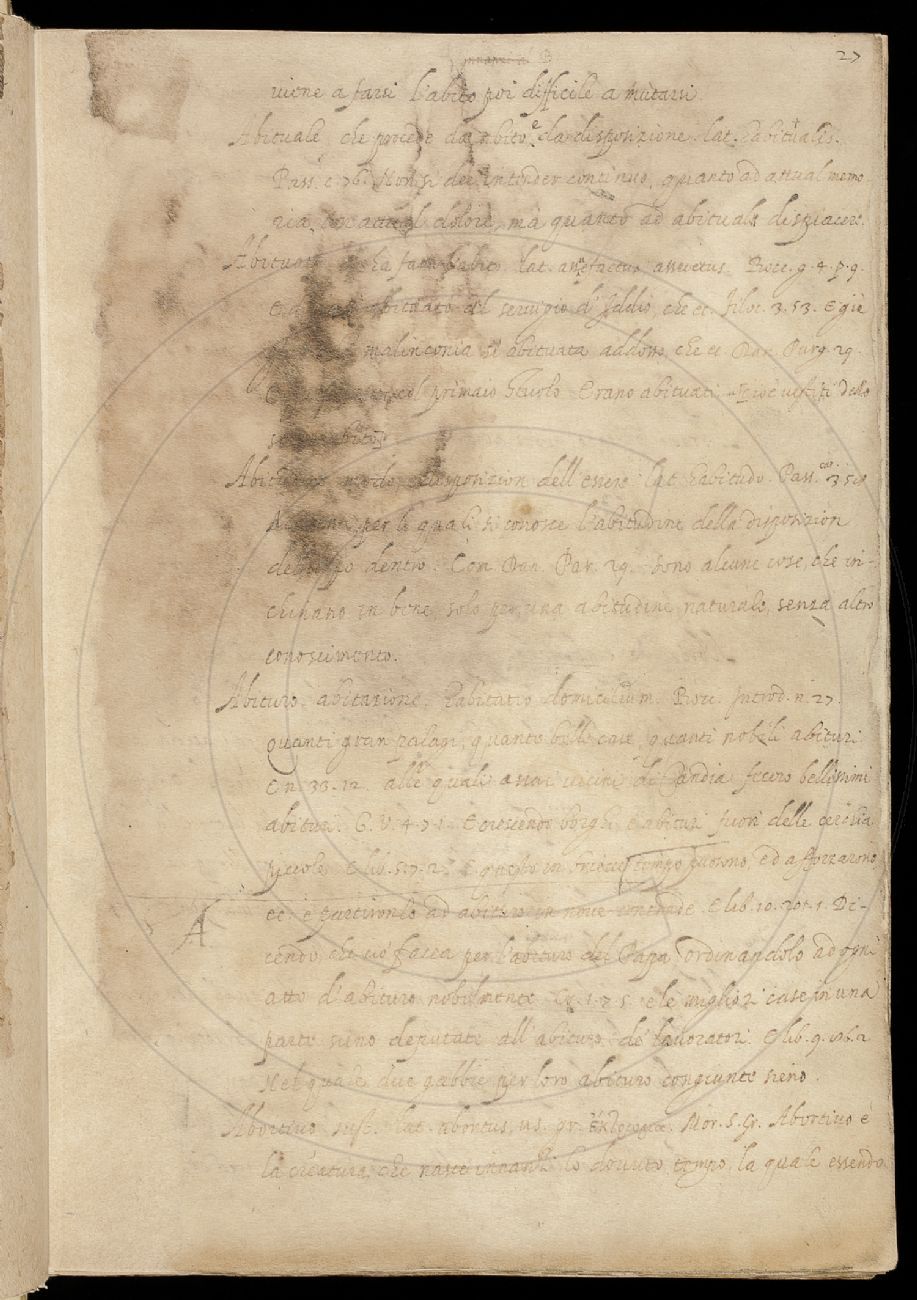 27
innanzi al B
viene a farsi l'abito poi difficile a mutarsi
Abituale che procede da abito, e da disposizione. lat. habitualis.
Pass. c. 76. Non si dee intender continuo, quanto ad attual memo
ria, attual dolore, mà quanto ad abituale despiacere.
Abituato ha fatto l'abito. lat. assuefactus, assuetus. Bocc. g. 4. p. 9.
abituato al servigio di Iddio, che ec. Filoc. 3. 53. E già
malinconia si abituata addosso, che ec. Dan. Purg. 29.
col primaio stuolo Erano abituati. cioè vestiti dello
abito
modo, disposizion dell'essere. lat. habitudo. Pass. car. 359
per le quali si conosce l'abitudine della disposizion
dentro. Con. Dan. Par. 29. Sono alcune cose, che in-
chinano in bene, solo per una abitudine naturale, senza altro
conoscimento.
Abituro. abitazione. habitatio domicilium. Bocc. Introd. n. 27.
quanti gran palagi, quante belle case, quanti nobili abituri
E n. 33. 12. alle quali assai vicini di Candia fecero bellissimi
abituri. G. V. 4. 7. 1. E crescendo borghi, e abituri fuori delle
piccole. E lib. 5. 7. 2. E questo in brieve tempo furono, ed afforzarono
ec. e partironlo ad abituro in nove contrade. E lib. 10. 201. 1. Di-
cendo, che ciò facea per l'abituro del Papa, ordinandolo ad ogni
atto d'abituro nobilmente. Cr. 1. 7. 5. e le miglior' case in una
parte sieno deputate all'abituro de' lavoratori. E lib. 9.
Nel quale due gabbie per loro abituro congiunte sieno.
A
Abortivo sust. lat. abortus, us. gr. Mor. S. Gr. Abortivo è
la creatura, che nasce innanzi lo dovuto tempo, la quale essendo